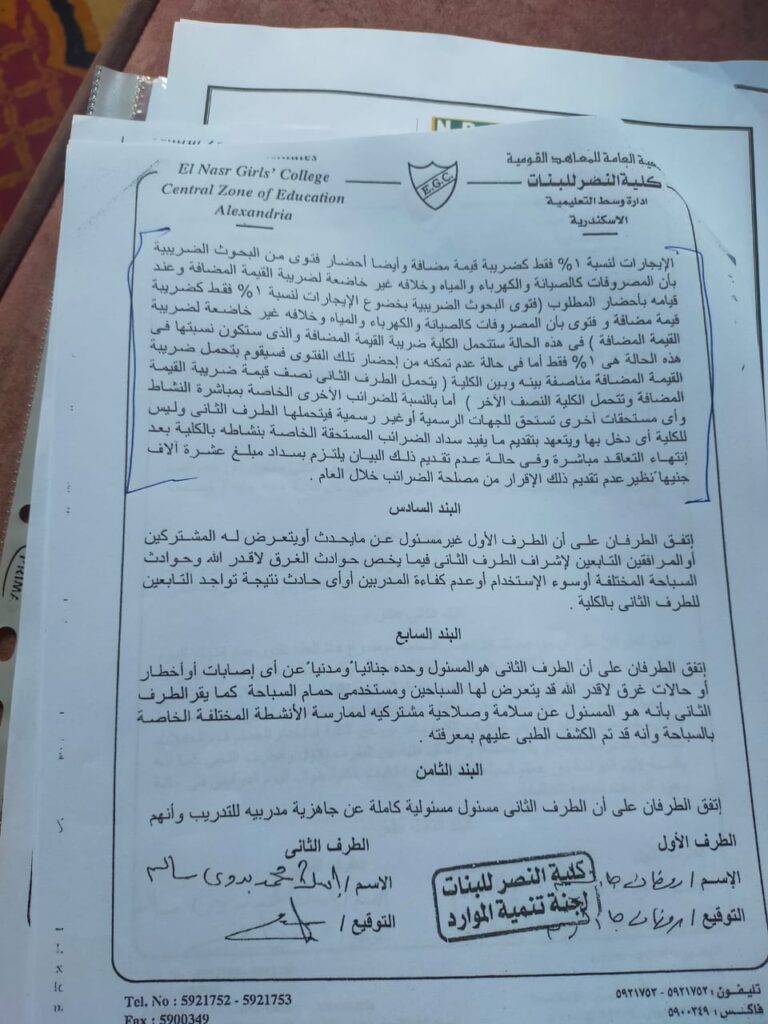 El Nasr Girls' College
Central Zone of Education
Alexandria
E.G.C.
العامة للمعاهد القومية
كلية النصر للبنات
ادارة وسط التعليمية
الاسكندرية
الإيجارات لنسبة ١% فقط كضريبة قيمة مضافة وأيضا أحضار فتوى من البحوث الضريبية
بأن المصروفات كالصيانة والكهرباء والمياه وخلافه غير خاضعة لضريبة القيمة المضافة وعند
قيامه بأحضار المطلوب (فتوى البحوث الضريبية بخضوع الإيجارات لنسبة ١% فقط كضريبة
قيمة مضافة و فتوى بأن المصروفات كالصيانة والكهرباء والمياه وخلافه غير خاضعة لضريبة
القيمة المضافة ) فى هذه الحالة ستتحمل الكلية ضريبة القيمة المضافة والذى ستكون نسبتها فى
هذه الحالة هى ١% فقط أما فى حالة عدم تمكنه من إحضار تلك الفتوى فسيقوم بتحمل ضريبة
القيمة المضافة مناصفة بينه وبين الكلية ( يتحمل الطرف الثانى نصف قيمة ضريبة القيمة
المضافة وتتحمل الكلية النصف الآخر ) أما بالنسبة للضرائب الأخرى الخاصة بمباشرة النشاط
وأى مستحقات أخرى تستحق للجهات الرسمية أوغير رسمية فيتحملها الطرف الثانى وليس
للكلية أى دخل بها ويتعهد بتقديم ما يفيد سداد الضرائب المستحقة الخاصة بنشاطه بالكلية بعد
إنتهاء التعاقد مباشرة وفى حالة عدم تقديم ذلك البيان يلتزم بسداد مبلغ عشرة آلاف
جنيها ًنظير عدم تقديم ذلك الإقرار من مصلحة الضرائب خلال العام .
البند السادس
إتفق الطرفان على أن الطرف الأول غيرمسئول عن مايحدث أويتعرض له المشتركين
أوالمرافقين التابعين لإشراف الطرف الثانى فيما يخص حوادث الغرق لاقدر الله وحوادث
السباحة المختلفة أوسوء الإستخدام أوعدم كفاءة المدربين أوأى حادث نتيجة تواجد التابعين
للطرف الثانى بالكلية .
البند السابع
إتفق الطرفان على أن الطرف الثانى هوالمسئول وحده جنائيا ًومدنيا ًعن أى إصابات أوأخطار
أو حالات غرق لاقدر الله قد يتعرض لها السباحين ومستخدمى حمام السباحة كما يقرالطرف
الثانى بأنه هو المسئول عن سلامة وصلاحية مشتركيه لممارسة الأنشطة المختلفة الخاصة
بالسباحة وأنه قد تم الكشف الطبى عليهم بمعرفته .
البند الثامن
إتفق الطرفان على أن الطرف الثانى مسئول مسئولية كاملة عن جاهزية مدربيه للتدريب وأنهم
الطرف الأول
الطرف الثانى
الإسم /
الاسم / محمد بدوى سالم
التوقيع /
التوقيع /
كلية النصر للبنات
لجنة تنمية الموارد
Tel. No : 5921752 - 5921753
Fax : 5900349
تليفون : ٥٩٢١٧٥٢ - ٥٩٢١٧٥٣
فاكس : ٥٩٠٠٣٤٩